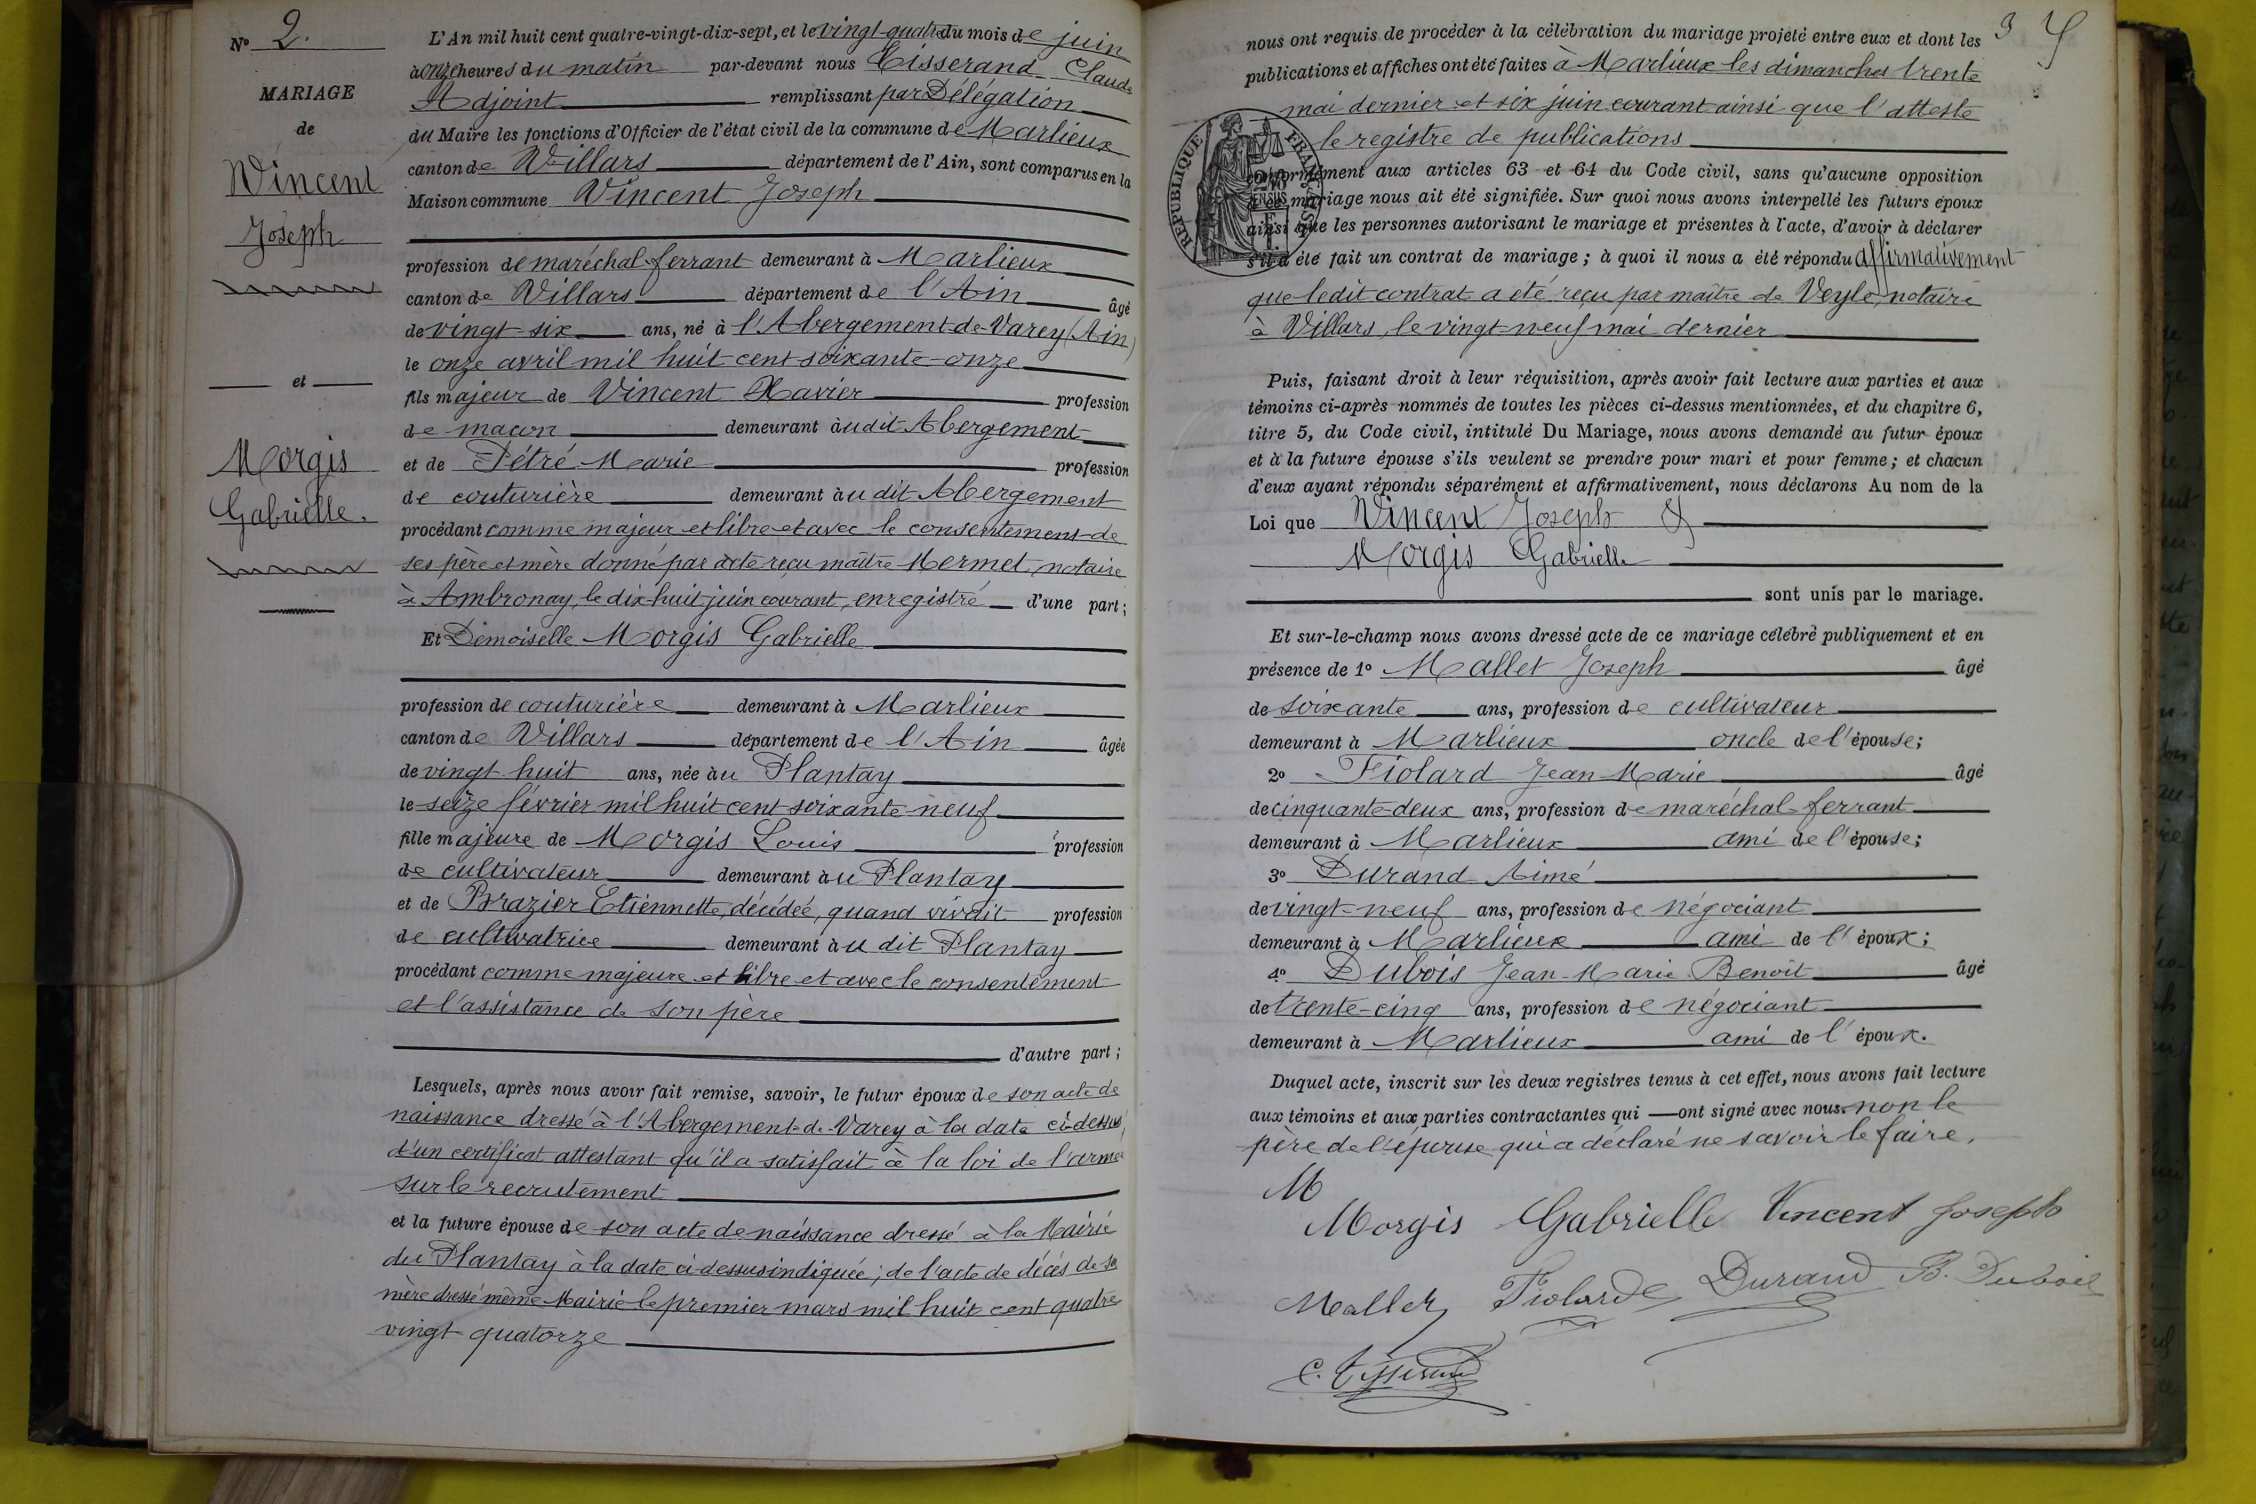 N° 2.
MARIAGE
de
Vincent
Joseph
et
Morgis
Gabrielle.
L'An mil huit cent quatre-vingt-dix-sept, et le vingt-quatre du mois de juin
à onze heures du matin par-devant nous Tisserand Claude
Adjoint remplissant par Délégation
du Maire les fonctions d'Officier de l'état civil de la commune de Marlieux
canton de Villars département de l'Ain, sont comparus en la
Maison commune Vincent Joseph
profession de maréchal-ferrant demeurant à Marlieux
canton de Villars département de l'Ain âgé
de vingt-six ans, né à l'Abergement-de-Varey (Ain)
le onze avril mil huit cent soixante-onze
fils majeur de Vincent Xavier profession
de maçon demeurant àudit Abergement
et de Pétré Marie profession
de couturière demeurant àu dit Abergement
procédant comme majeur et libre et avec le consentement de
ses père et mère donné par acte reçu maître Mermet, notaire
à Ambronay, le dix-huit juin courant, enregistré d'une part;
Et Demoiselle Morgis Gabrielle
profession de couturière demeurant à Marlieux
canton de Villars département de l'Ain âgée
de vingt huit ans, née àu Plantay
le seize février mil huit cent soixante-neuf
fille majeure de Morgis Louis profession
de cultivateur demeurant àu Plantay
et de Brazier Etiennette, décédée, quand vivait profession
de cultivatrice demeurant àu dit Plantay
procédant comme majeure et libre et avec le consentement
et l'assistance de son père
d'autre part;
Lesquels, après nous avoir fait remise, savoir, le futur époux de son acte de
naissance dressé à l'Abergement-de-Varey à la date ci-dessus,
d'un certificat attestant qu'il a satisfait à la loi de l'armée
sur le recrutement
et la future épouse de son acte de naissance dressé à la Mairie
du Plantay à la date ci-dessus indiquée; de l'acte de décès de sa
mère dressé même Mairie le premier mars mil huit cent quatre
vingt quatorze
3
nous ont requis de procéder à la célébration du mariage projeté entre eux et dont les
publications et affiches ont été faites à Marlieux les dimanches trente
mai dernier et six juin courant ainsi que l'atteste
le registre de publications
RÉPUBLIQUE FRANÇAISE
conformément aux articles 63 et 64 du Code civil, sans qu'aucune opposition
à ce mariage nous ait été signifiée. Sur quoi nous avons interpellé les futurs époux
ainsi que les personnes autorisant le mariage et présentes à l'acte, d'avoir à déclarer
s'il a été fait un contrat de mariage; à quoi il nous a été répondu affirmativement
que ledit contrat a été reçu par maître de Veyle, notaire
à Villars, le vingt-neuf mai dernier
Puis, faisant droit à leur réquisition, après avoir fait lecture aux parties et aux
témoins ci-après nommés de toutes les pièces ci-dessus mentionnées, et du chapitre 6,
titre 5, du Code civil, intitulé Du Mariage, nous avons demandé au futur époux
et à la future épouse s'ils veulent se prendre pour mari et pour femme; et chacun
d'eux ayant répondu séparément et affirmativement, nous déclarons Au nom de la
Loi que Vincent Joseph &
Morgis Gabrielle
sont unis par le mariage.
Et sur-le-champ nous avons dressé acte de ce mariage célébré publiquement et en
présence de 1° Mallet Joseph âgé
de soixante ans, profession de cultivateur
demeurant à Marlieux oncle de l'épouse;
2° Fiolard Jean-Marie âgé
de cinquante-deux ans, profession de maréchal-ferrant
demeurant à Marlieux ami de l'épouse;
3° Durand Aimé
de vingt-neuf ans, profession de négociant
demeurant à Marlieux ami de l'époux;
4° Dubois Jean-Marie Benoît âgé
de trente-cinq ans, profession de négociant
demeurant à Marlieux ami de l'époux.
Duquel acte, inscrit sur les deux registres tenus à cet effet, nous avons fait lecture
aux témoins et aux parties contractantes qui ont signé avec nous. non le
père de l'épouse qui a déclaré ne savoir le faire.
M
Morgis Gabrielle Vincent Joseph
Mallet Fiolard Durand B. Dubois
C. Tisserand